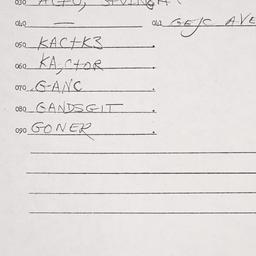 040 — 041 GEJC AVE
050 KACTK3
060 KA,CTOR
070 G-ANC
080 GANDSGIT
090 GONER